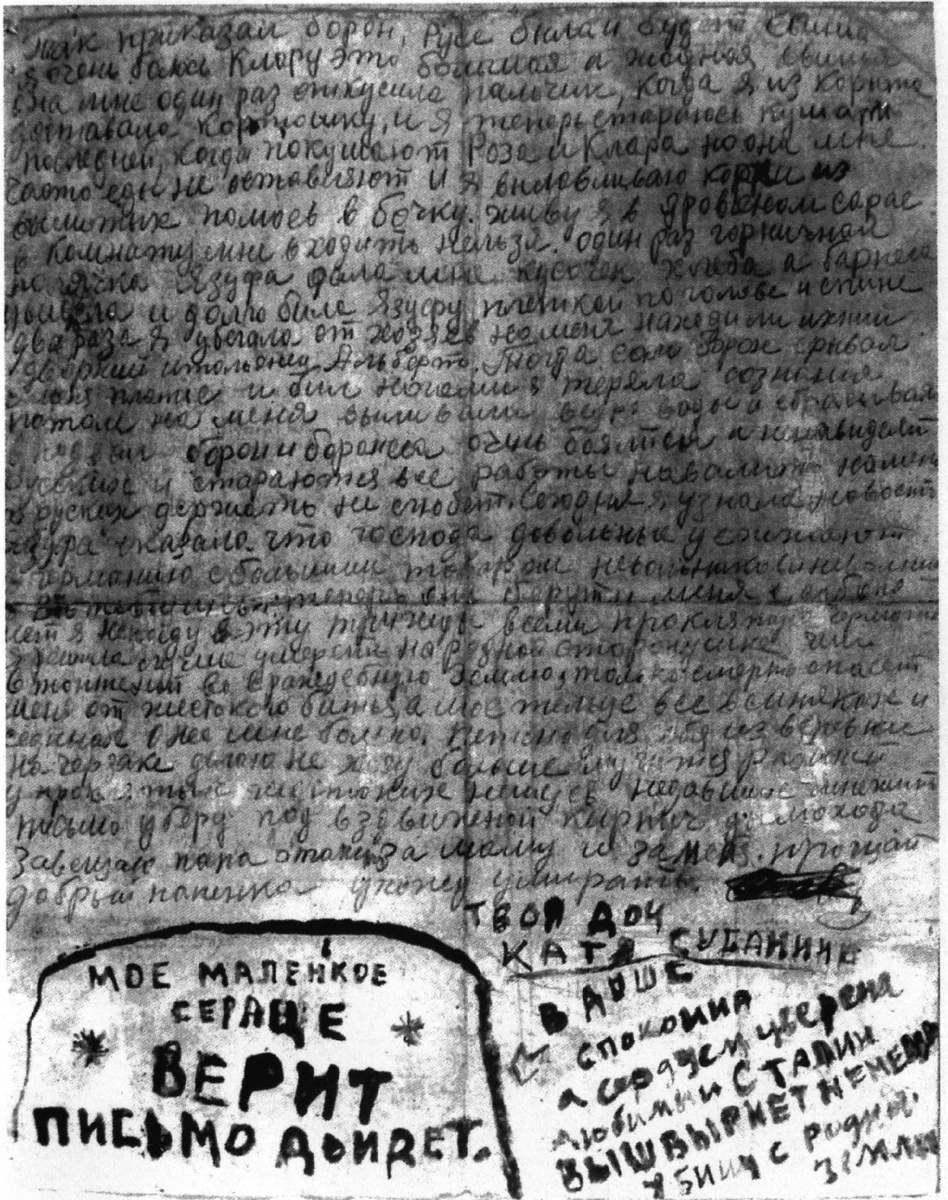 так приказал борон, Русс была и будет свиня
я очень боюсь Клору это большая а жадная свиня
она мне один раз откусила пальчик, когда я из корита
доставала картошку, и я теперь стараюсь кушать
последней, когда покушают Роза и Клара но они мне
часто еды не оставляют и я вылавливаю корки из
помоев в бочку. живу я в дровяном сарае
в комнату мне входить нельзя. один раз горничная
полячка Язуфа дала мне кусочек хлеба а
и долго била Язуфу плеткой по голове и спине
два раза я убегала от хозяев но меня находили ихний
дворник итольянец Альберто. Тогда сам борон срывал
с меня платье и бил ногами я теряла сознания
потом на меня выливали ведро воды и сбрасывали
борон и боронеса очинь боятся и ненавидят
русских и стараются все работы навалить на меня
руских держать не любят. Сегодня я узнала новость
Язуфа сказала что господа довольны уезжают
в германию с большим товаром невольников и невольниц
теперь они берут и меня с собою
нет я непоеду в эту трижды всеми проклятую германию
я решила лучше умереть на родной сторонушке чем
в топчет в враждебную землю, только смерть спасет
меня от жестокого битья а мое тельце все в синяках и
ссадинах оно мне больно. из веровки
на чердаке делою не хочу больше мучатся рабыней
у проклятых жестоких немцев недавших мне жить
письмо уберу под вздвиженой кирпич дымохода
Завещаю папа отомсти за маму и за меня. прощай
добрый папенка ухожу умирать.
ТВОЯ ДОЧ
КАТЯ СУСАНИНА
МОЕ МАЛЕНКОЕ
СЕРДЦЕ
ВЕРИТ
ПИСЬМО ДЬЙДЕТ.
В ДОШЕ
СПОКОЙНА
а сердцем уверена
любимый СТАЛИН
ВЫШВЫРНЕТ НЕМЕЦКИХ
УБИЙЦ с родной
ЗЕМЛИ